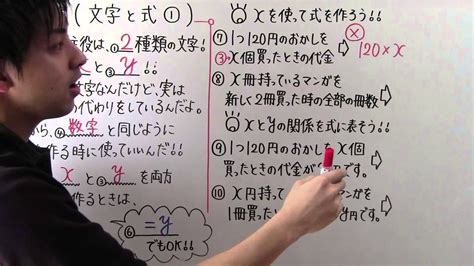 (文字と式①)
役は、①2種類の文字!
と③y!!
文字なんだけど、実は
の代わりをしているんだよ。
から、④数字と同じように
作る時に使っていいんだ!!
xと③yを両方
作るときは、
⑥=y
でもOK!!
xを使って式を作ろう!!
⑦1つ120円のおかしを
③x個買ったときの代金
⇨
×
120×x
⑧x冊持っているマンガを
新しく2冊買った時の全部の冊数
⇨
xとyの関係を式に表そう!!
⑨1つ120円のおかしをx個
買ったときの代金が 円です。
⇨
⑩x円持って マンガを
1冊買った y円です。
⇨